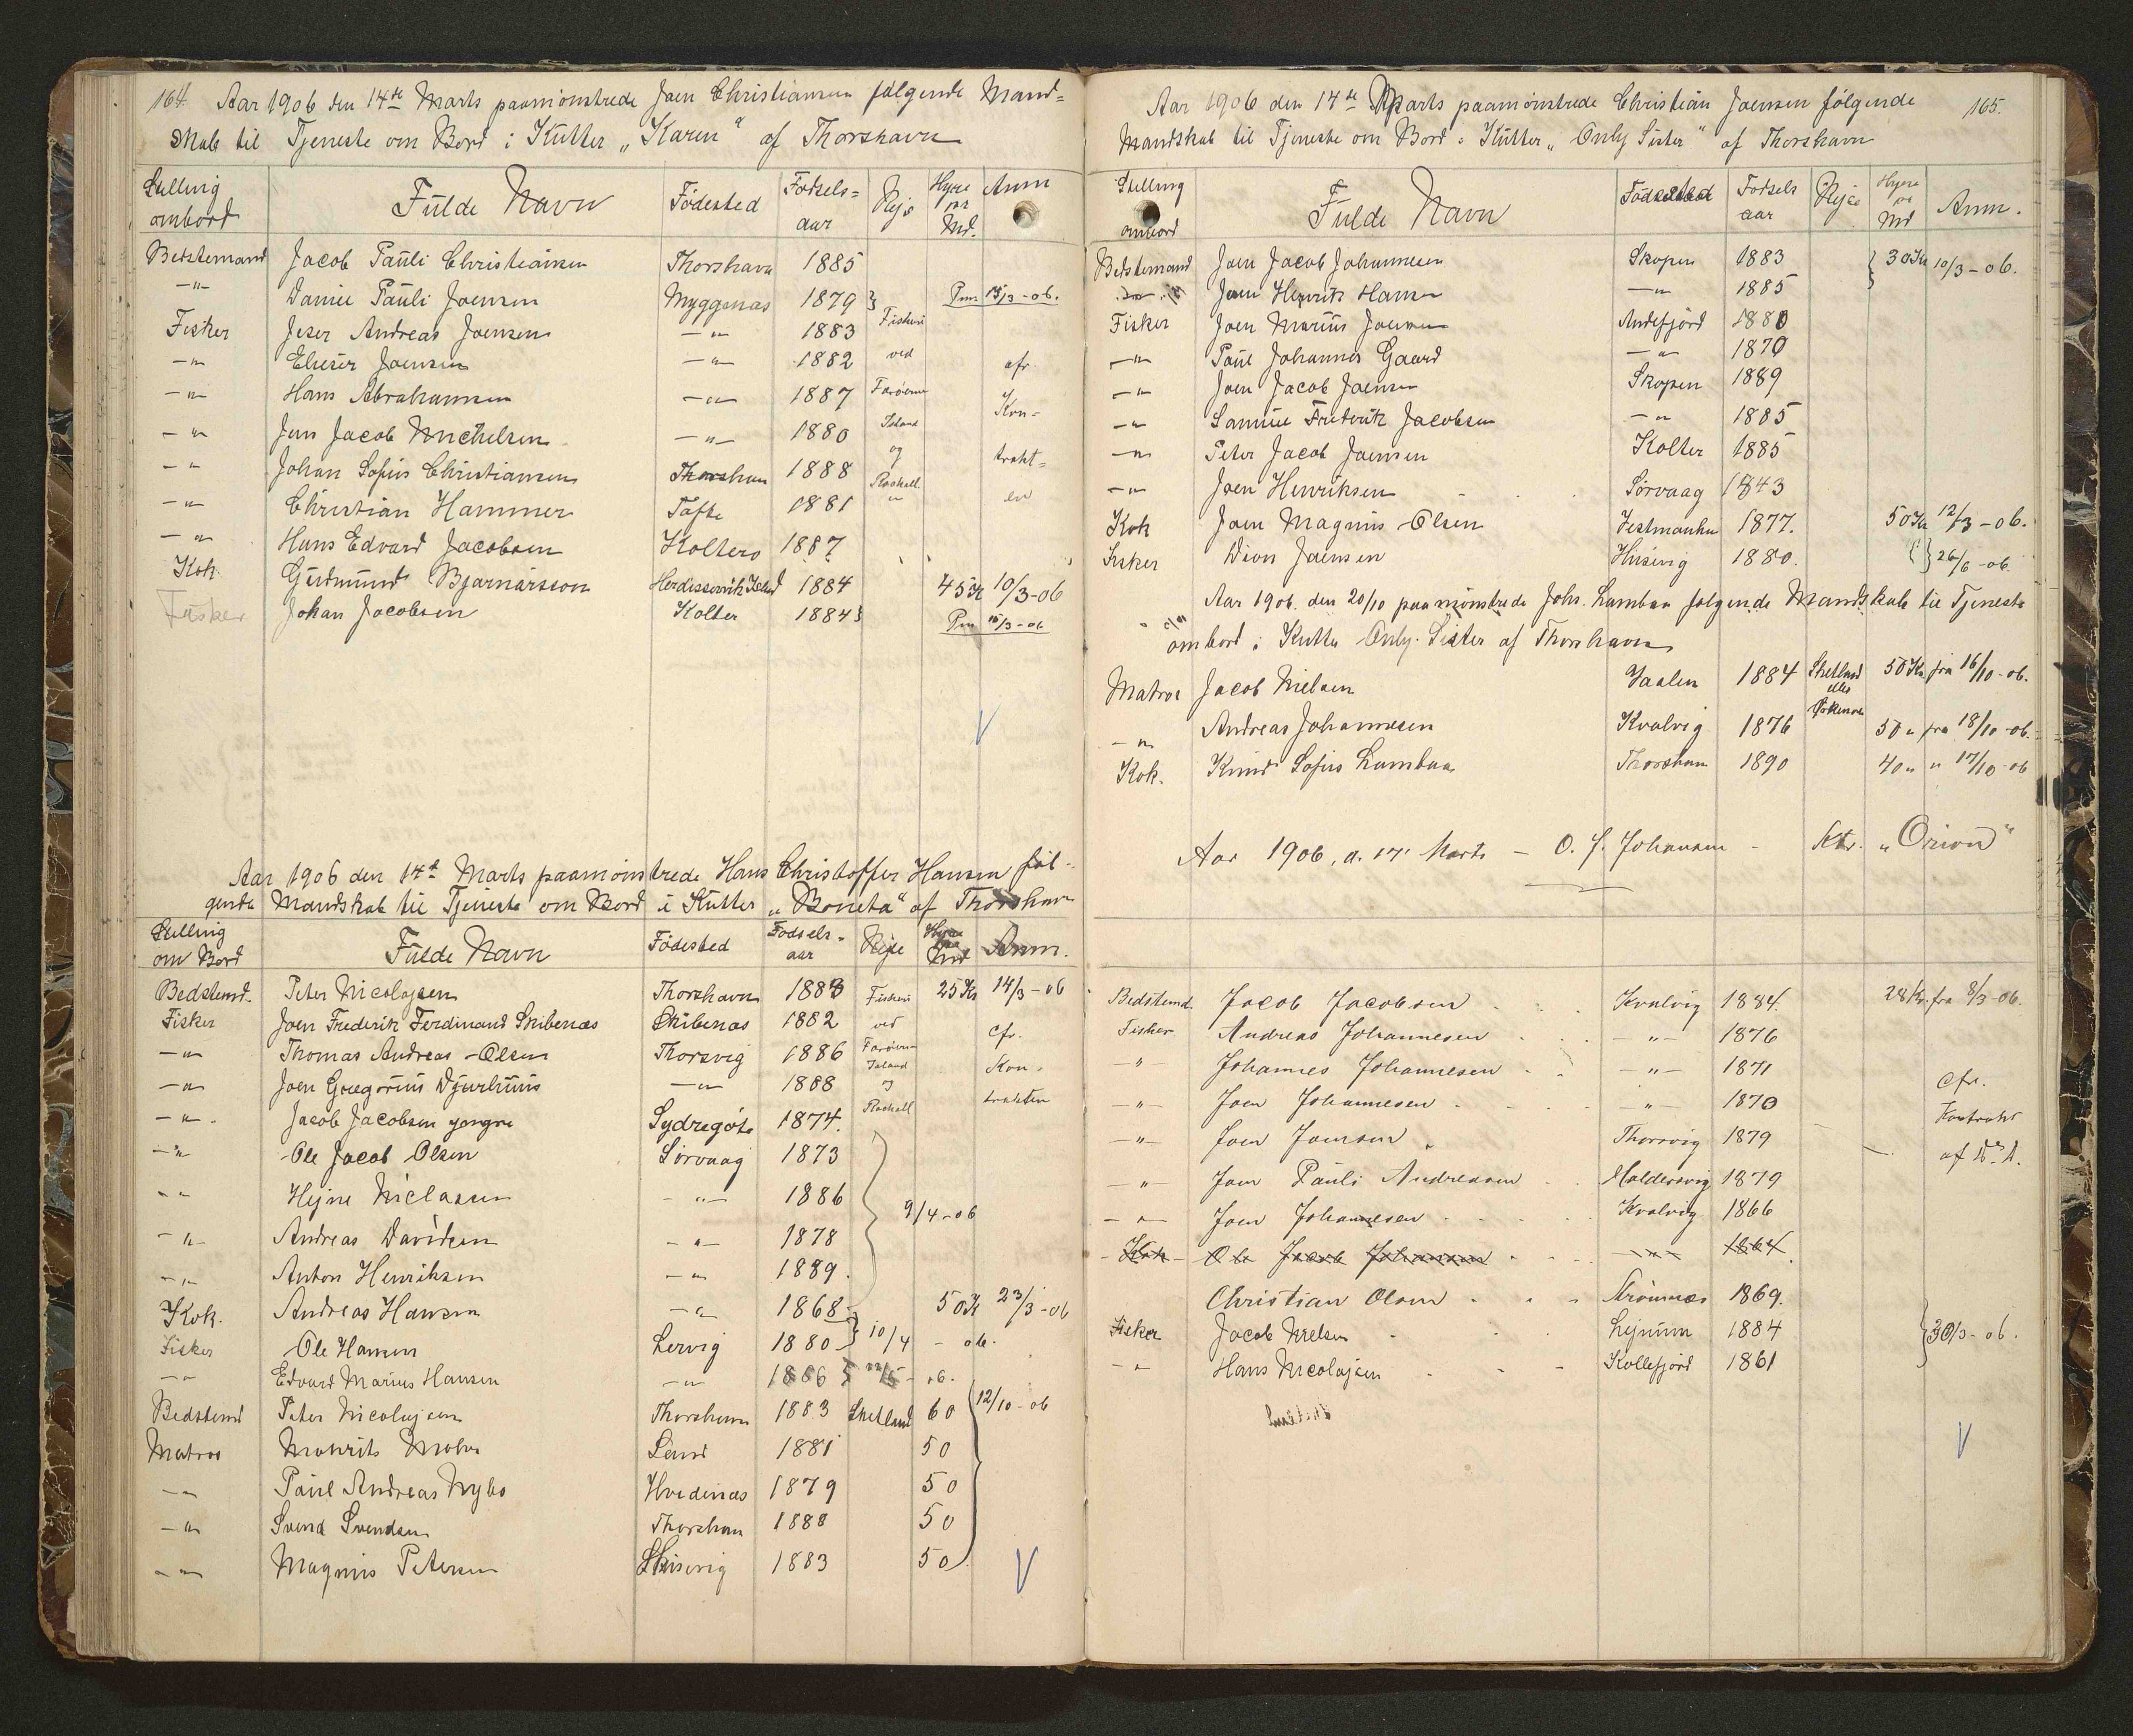 164. Aar 1906 den 14de Marts paamönstrede Joen Christiansen fölgende Mand=
skab til Tjeneste om Bord i Kutter „Karen" af Thorshavn
Stilling ombord Fulde Navn Födested Födsels= aar Rejse Hyre pr Md. Anm
Bedstemand Jacob Pauli Christiansen Thorshavn 1885
—"— Daniel Pauli Joensen Myggenæs 1879 } Pm. 15/3-06.
Fisker Jeser Andreas Joensen —"— 1883 Fiskeri
—"— Elieser Joensen —"— 1882 ved cfr.
—"— Hans Abrahamsen —"— 1887 Faröerne Kon-
—"— Jens Jacob Michelsen —"— 1880 Island
—"— Johan Sofus Christiansen Thorshavn 1888 og trakt=
—"— Christian Hammer Tofte 1881 Rockall en
—"— Hans Edvard Jacobsen Koltero 1887
Kok Gudmund Bjarnarsson Herdissarvik Island 1884 45 Kr 10/3-06
Fisker Johan Jacobsen Kolter 1884 } Pm 15/3-06
Aar 1906 den 14de Marts paamönstrede Hans Christoffer Hansen föl-
gende Mandskab til Tjeneste om Bord i Kutter „Boneta" af Thorshavn
Stilling om Bord Fulde Navn Födested Födsels- aar Rejse Hyre pr Md Anm.
Bedstemd. Peter Nicolajsen Thorshavn 1883 Fiskeri 25 Kr 14/3-06
Fisker Joen Frederik Ferdinand Skibenæs Skibenæs 1882 ved cfr.
—"— Thomas Andreas Olsen Thorsvig 1886 Faröerne
—"— Joen Gregorius Djurhuus —"— 1888 Island og Kon-
—"— Jacob Jacobsen yngre Sydregöte 1874. Rockall trakten
—"— Ole Jacob Olsen Sörvaag 1873
—"— Hejne Niclasen —"— 1886
—"— Andreas Davidsen —"— 1878 9/4-06
—"— Anton Henriksen —"— 1889.
Kok. Andreas Hansen —"— 1868 50 Kr 23/3-06
Fisker Ole Hansen Lervig 1880 } 10/4 - 06.
—"— Edvard Marius Hansen —"— 1886 } - 06.
Bedstemd Peter Nicolajsen Thorshavn 1883 Shetland 60 12/10-06
Matros Mourits Mohr Sand 1881 50
—"— Paul Andreas Nybo Hvidenæs 1879 50
—"— Svend Svendsen Thorshavn 1888 50
—"— Magnus Petersen 1883 50
Aar 1906 den 14de Marts paamönstrede Christian Joensen fölgende 165.
Mandskab til Tjeneste om Bord i Kutter „Only Sister" af Thorshavn
Stilling ombord Fulde Navn Födested Födsels aar Rejse Hyre pr Md Anm.
Bedstemand Joen Jacob Johannesen Skopen 1883 } 30 Kr 10/3-06.
Joen Henrik Hansen —"— 1885
Fisker Joen Marius Joensen Andefjörd 1880
—"— Poul Johannes Gaard —"— 1870
—"— Joen Jacob Joensen Skopen 1889
—"— Samuel Frederik Jacobsen —"— 1885
—"— Peter Jacob Joensen Kolter 1885
—"— Joen Henriksen Sörvaag 1843
Kok Joen Magnus Olsen Vestmanhn 1877. 50 Kr 12/3-06.
Fisker Dion Joensen Husevig 1880. } 26/6-06.
Aar 1906. den 20/10 paamönstrede Johs. Lamhau fölgende Mandskab til Tjeneste
ombord i Kutter Only Sister af Thorshavn
Matros Jacob Nielsen Vaalen 1884 Shetland eller 50 Kr. fra 16/10-06.
—"— Andreas Johannesen Kvalvig 1876 Orkenöe 50 " fra 18/10-06.
Kok. Knud Sofus Lamhau Thorshavn 1890 40 " " 17/10-06
Aar 1906, d. 17' Marts — O. J. Johansen — Ktr. „Orion"
Bedstemd. Jacob Jacobsen Kvalvig 1884. 28 Kr. fra 8/3-06.
Fisker Andreas Johannesen —"— 1876
—"— Johannes Johannesen —"— 1871 cfr.
—"— Joen Johannesen —"— 1870 Kontrakt
—"— Joen Joensen Thorsvig 1879
—"— Joen Pauli Andreasen Haldersvig 1879
—"— Joen Johannesen Kvalvig 1866
Kok Ole Jacob Johansen —"— 1864.
Christian Olsen Strömnæs 1869.
Fisker Jacob Nielsen Lejnum 1884 } 30/3-06.
—"— Hans Nicolajsen Kollefjord 1861